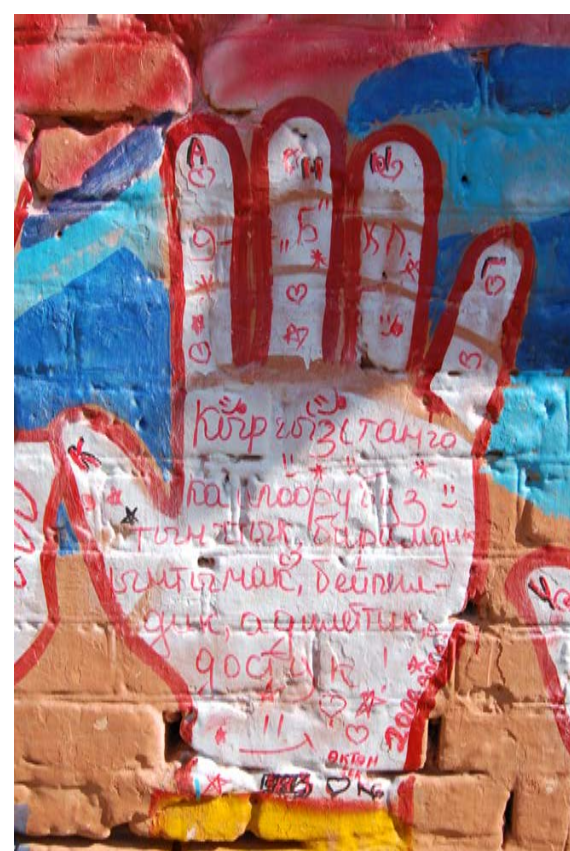 А Н Ы Г
9- "Б" КЛ.
Кыргызстанга
К
каалоорубуз
тынчтык, биримдик
ынтымак, бейпил-
дик, адилеттик,
достук!
KG